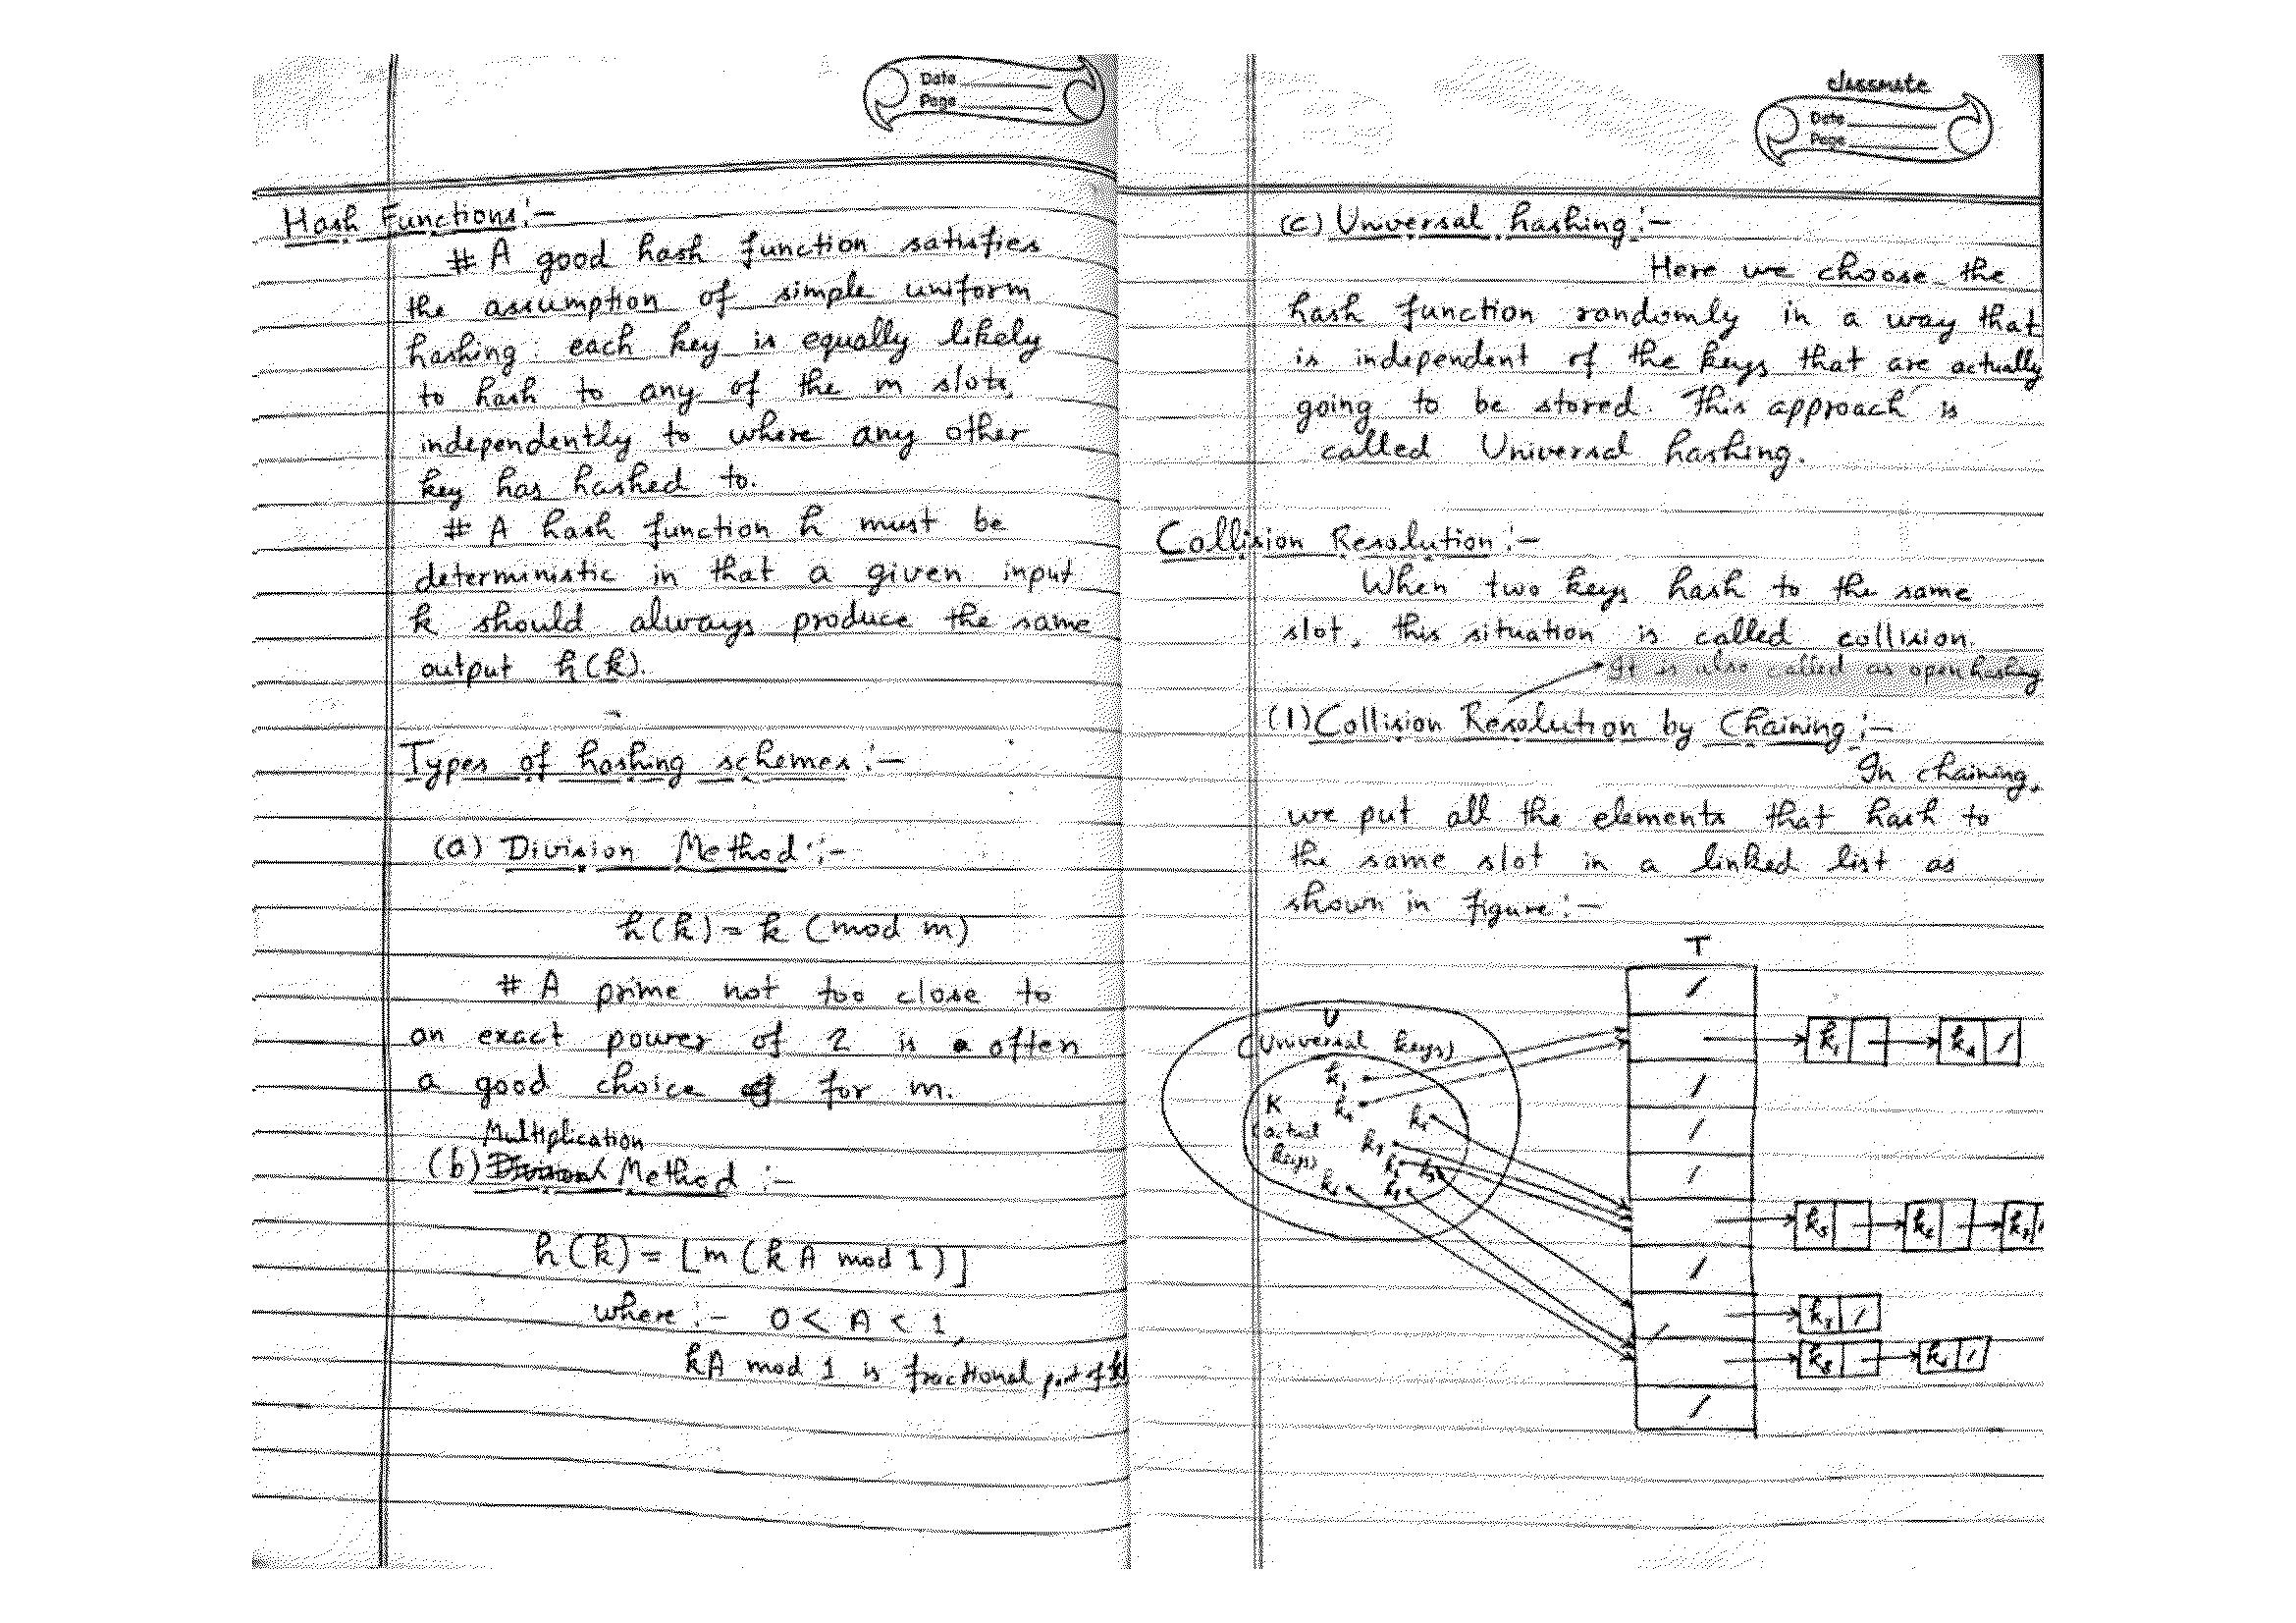 Date
Page
Hash Functions:-
# A good hash function satisfies
the assumption of simple uniform
hashing: each key is equally likely
to hash to any of the m slots,
independently to where any other
key has hashed to.
# A hash function h must be
deterministic in that a given input
k should always produce the same
output h(k).
Types of hashing schemes:-
(a) Division Method:-
h(k) = k (mod m)
# A prime not too close to
an exact power of 2 is often
a good choice for m.
Multiplication
(b) Method :-
h(k) = ⌊m (k A mod 1)⌋
where :- 0 < A < 1,
kA mod 1 is fractional part of
classmate
Date
Page
(c) Unversal hashing:-
Here we choose the
hash function randomly in a way that
is independent of the keys that are actually
going to be stored. This approach is
called Universal hashing.
Collision Resolution:-
When two keys hash to the same
slot, this situation is called collision.
It is also called as open hashing
(1) Collision Resolution by Chaining:-
In chaining,
we put all the elements that hash to
the same slot in a linked list as
shown in figure:-
T
U
(Universal keys)
K
(actual
keys)
k1
k1 k4
k5